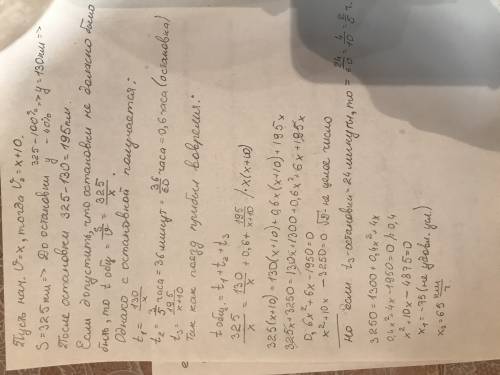 Пусть нач. V=x, тогда V₂=x+10.
S=325км=> До остановки 325-100% y-40% => y=130км =>
После остановки 325-130=195км.
Если допустить, что остановки не должно было
быть, то t общ = S/V = 325/x.
Однако с остановкой получается:
t₁ = 130/x
t₂ = 3/5 часа = 36 минут = 36/60 часа = 0,6 часа (остановка)
t₃ = 195/(x+10)
Так как поезд прибыл вовремя:
t общ. = t₁+t₂+t₃
325/x = 130/x + 0,6 + 195/(x+10) /·x(x+10)
325(x+10)=130(x+10)+0,6x(x+10)+195x
325x+3250=130x+1300+0,6x²+6x+195x
0,6x²+6x-1950=0
x²+10x-3250=0 - не целое число
Но если t₃-остановки=24 минуты, то = 24/60 = 4/10 = 2/5 ч.
3250=1300+0,4x²+4x
0,4x²+4x-1950=0/:0,4
x²+10x-4875=0
x₁=-75 (не удовл. усл.)
x₂=65 км/ч